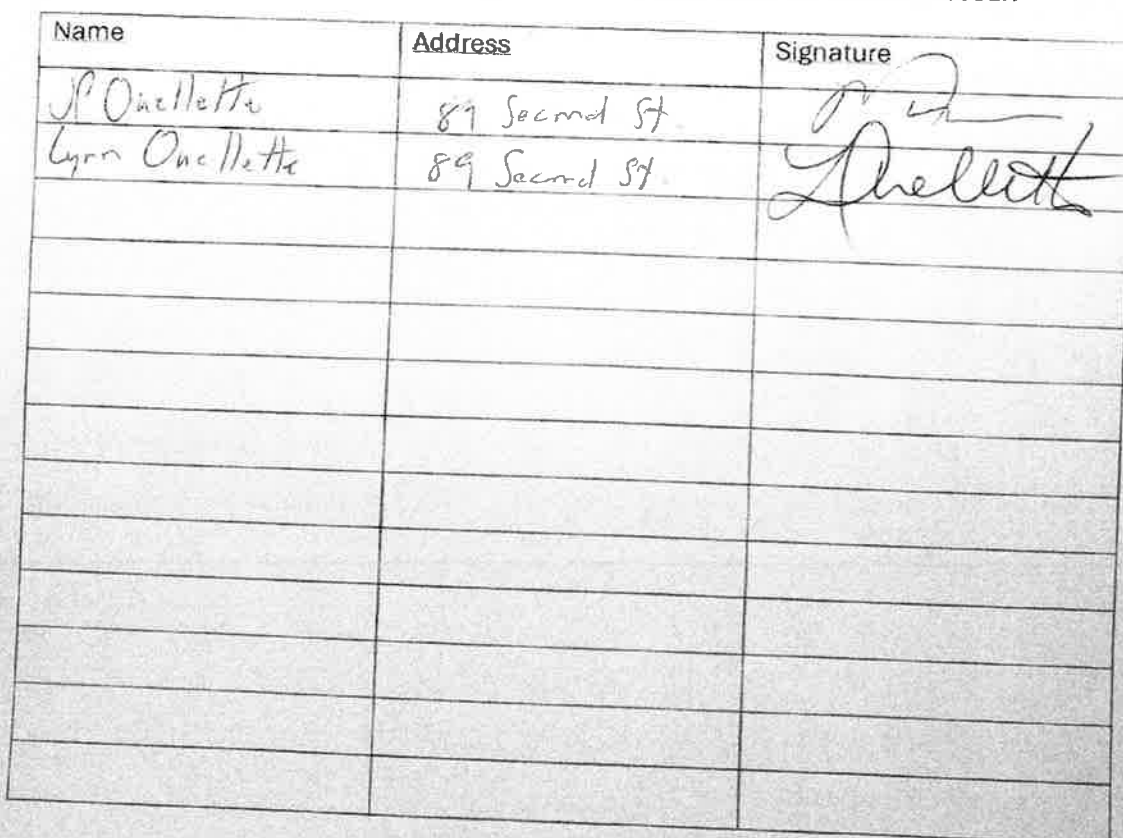 Name Address Signature
JP Ouellette 89 Second St.
Lynn Ouellette 89 Second St. LOuellette